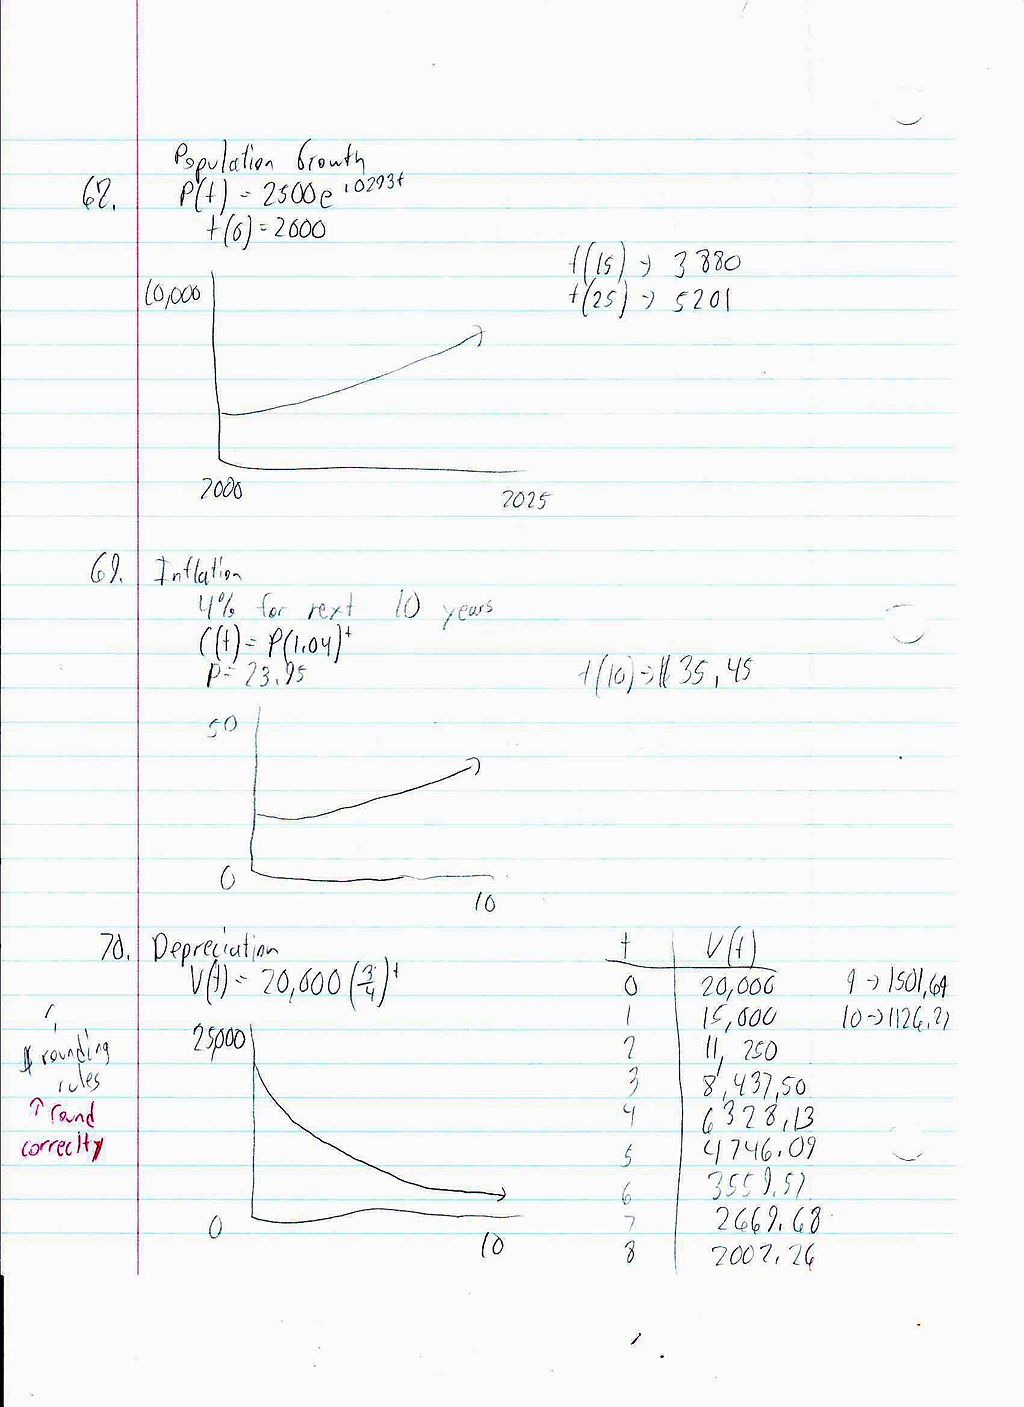 Population Growth
62. P(t) = 2500e^.0293t
t(0) = 2000
t(15) → 3880
t(25) → 5201
10,000
2000
2025
69. Inflation
4% for next 10 years
C(t) = P(1.04)^t
P = 23.95
t(10) → $35.45
50
0
10
70. Depreciation
V(t) = 20,000 (3/4)^t
t V(t)
0 20,000 9 → 1501.69
1 15,000
2 11,250
3 8,437.50
4 6328.13
5 4746.09
6 3559.57
7 2669.68
8 2002.26
25,000
0
10
$ rounding
rules
↑ round
correcltly